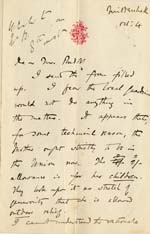 Oct. 4
Dear Mr
I send the form filled
up. I fear the local Guardians
would not do anything in
the matter. It appears that,
for some technical reason, the
Mother ought strictly to be in
the Union now. The
allowance is for her children
They look upon it as stretch of
generosity that she is allowed
outdoor relief.
I cannot understand the rationale